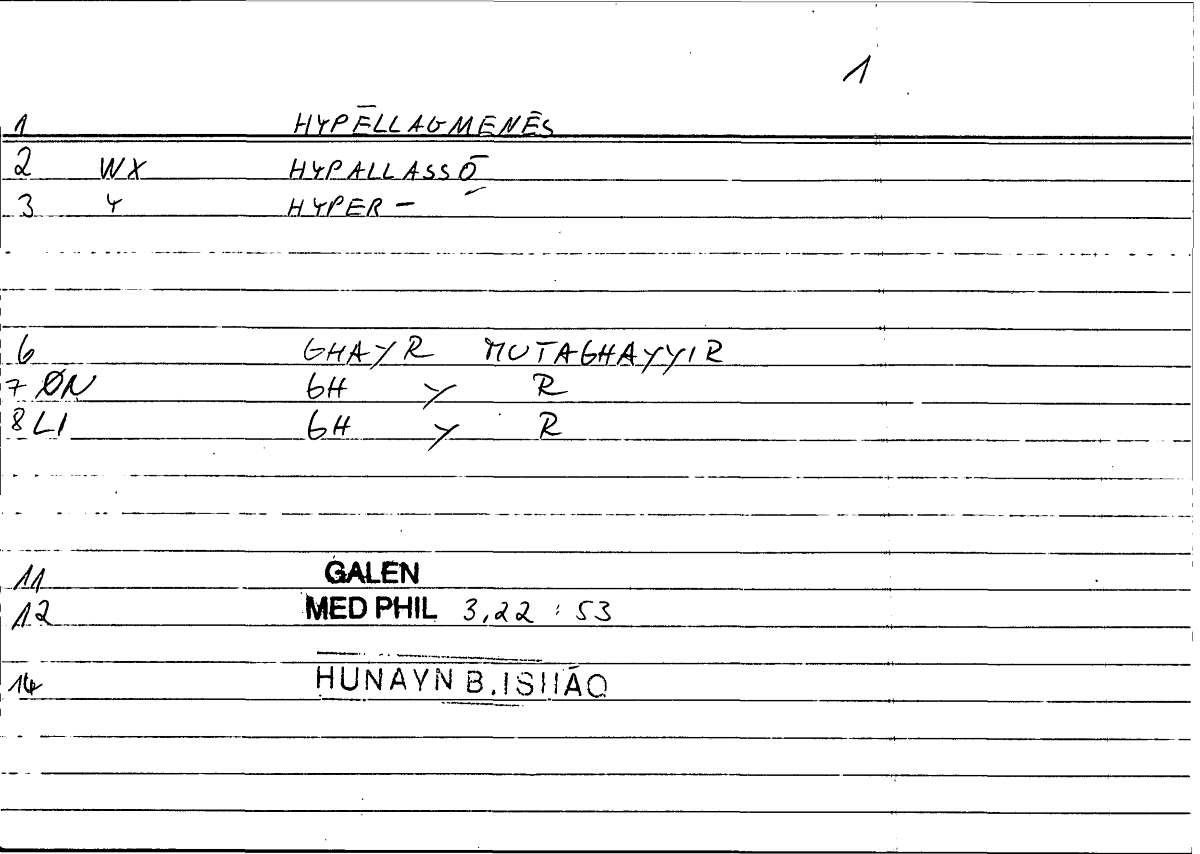 1
1 HYPĒLLAGMENĒS
2 WX HYPALLASSŌ
3 Y HYPER-
6 GHAYR MUTAGHAYYIR
7 ØN GH Y R
8 LI GH Y R
11 GALEN
12 MED PHIL 3,22 : 53
14 HUNAYN B. ISḤĀQ